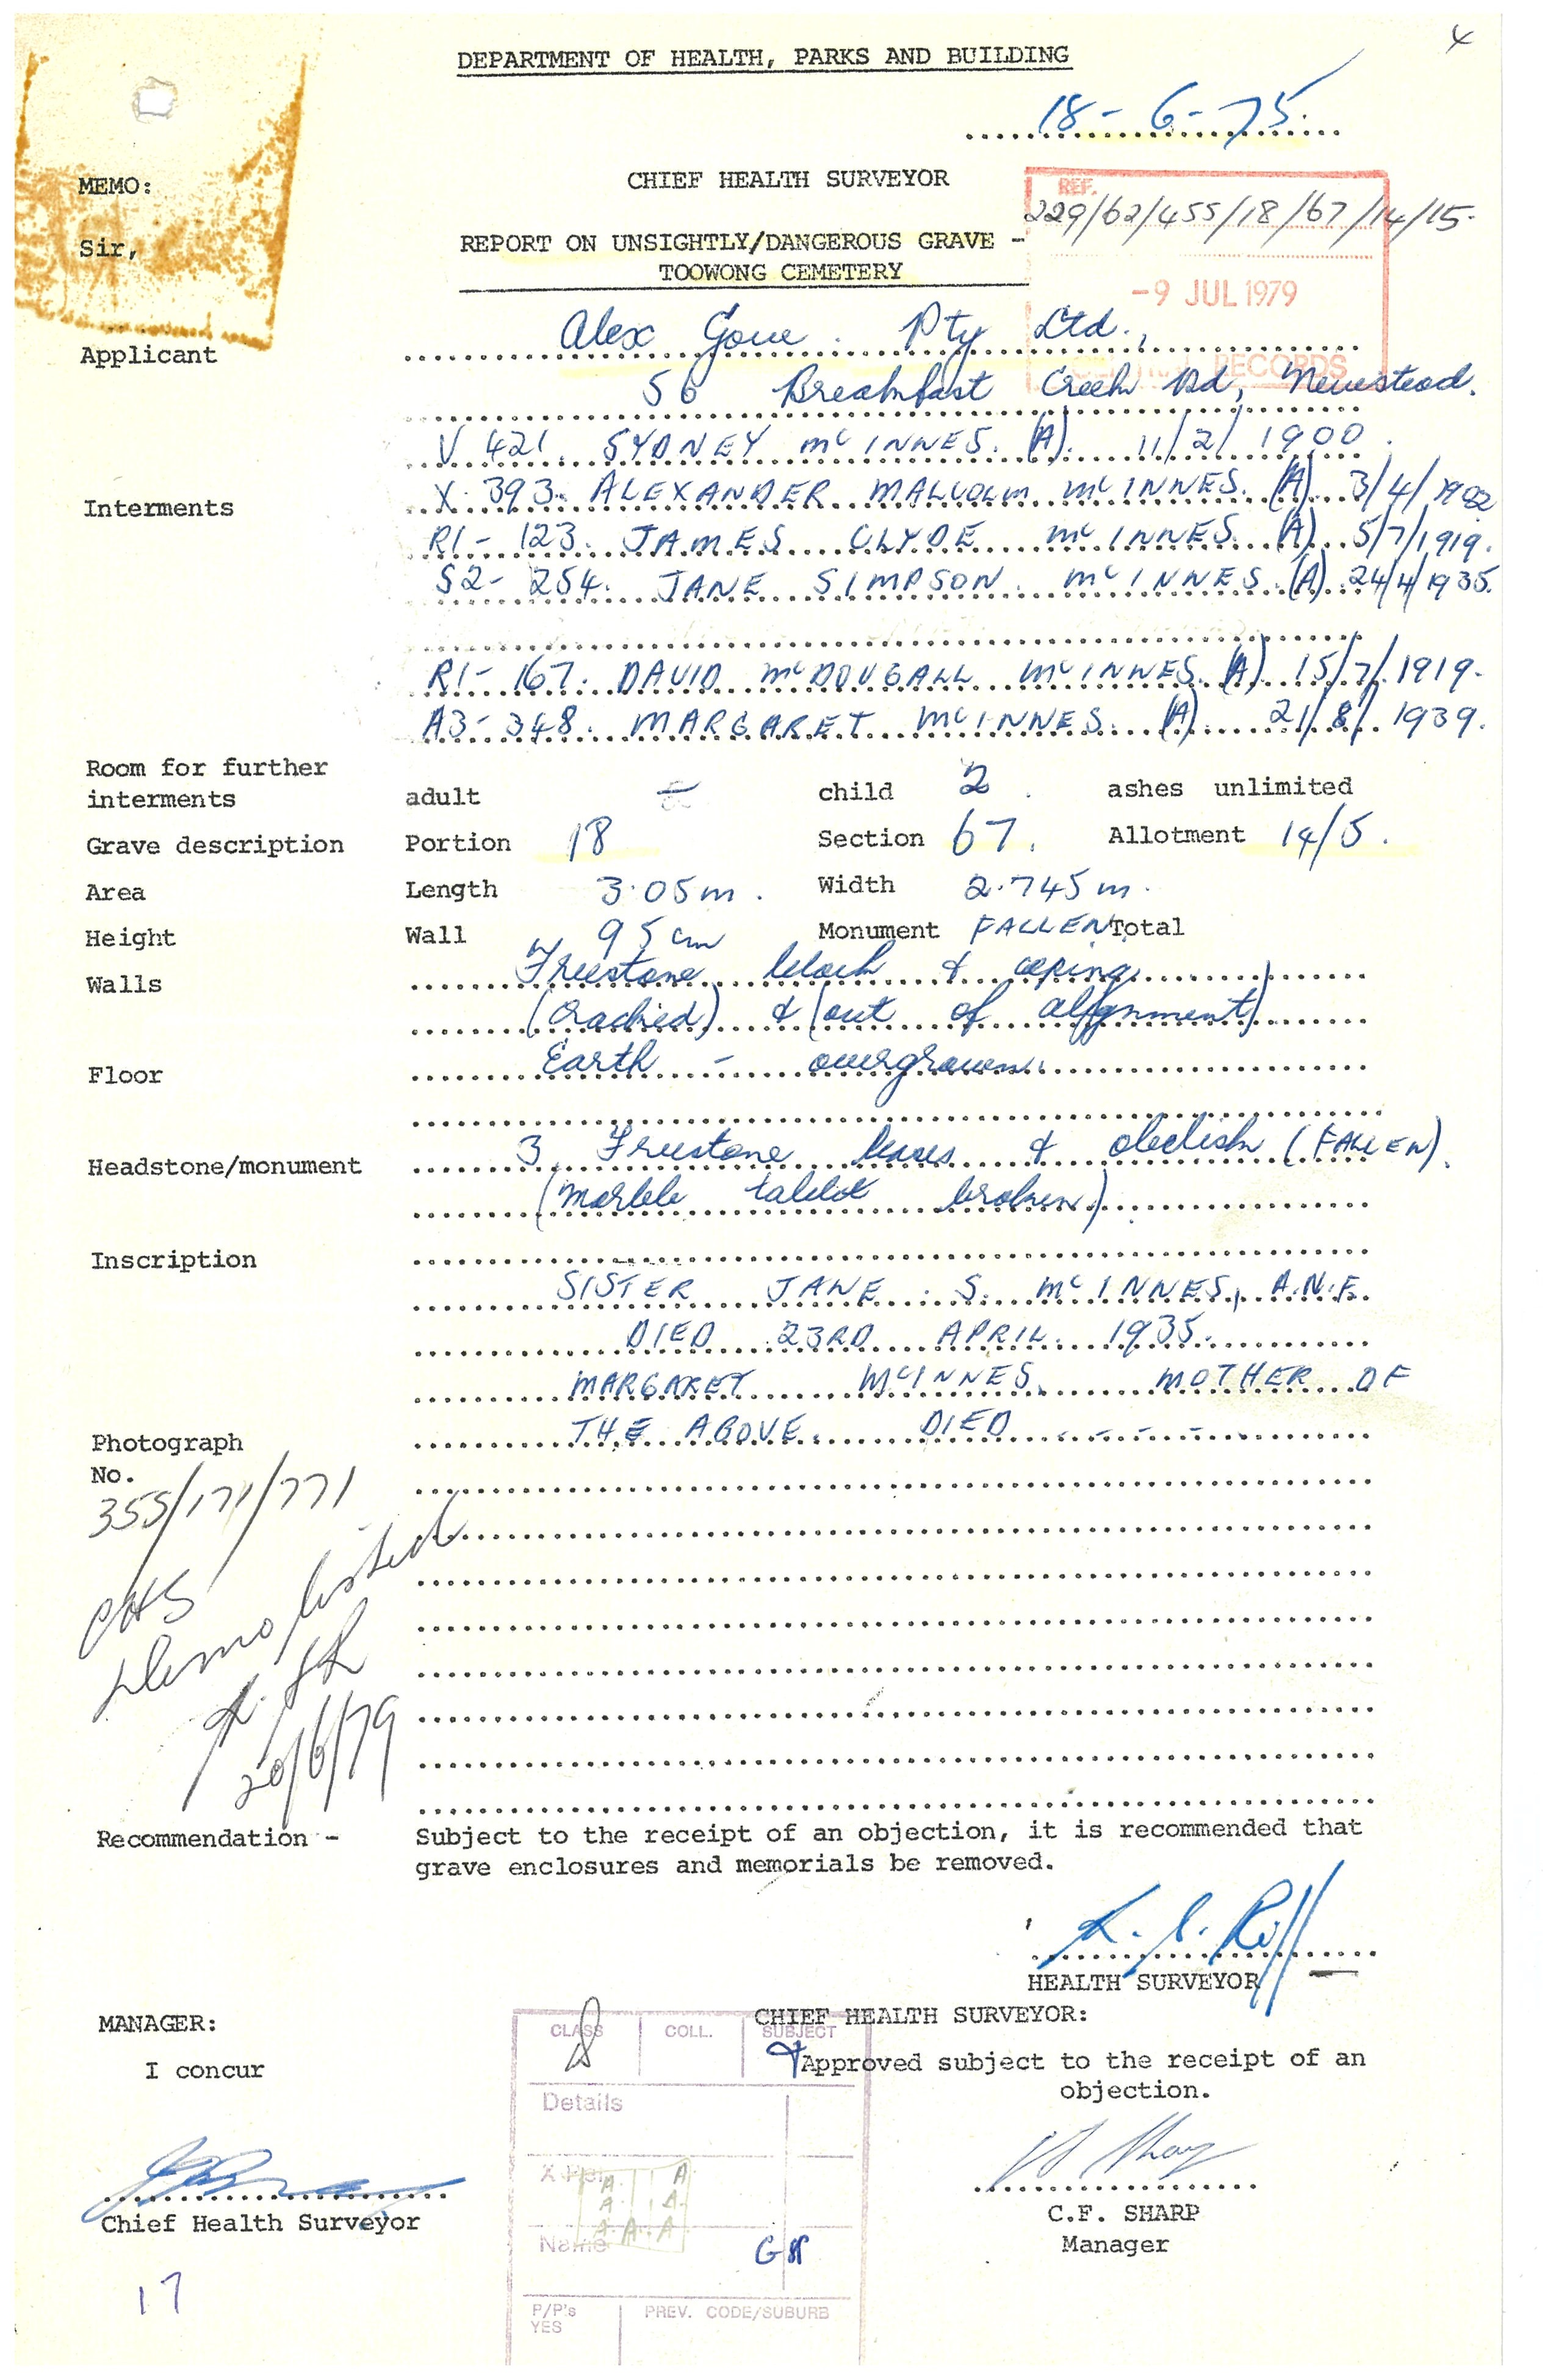 4
DEPARTMENT OF HEALTH, PARKS AND BUILDING
18-6-75.
MEMO:
CHIEF HEALTH SURVEYOR
REF.
229/62/455/18/67/14/15.
Sir,
REPORT ON UNSIGHTLY/DANGEROUS GRAVE -
TOOWONG CEMETERY
-9 JUL 1979
RECORDS
Applicant
Alex Gow Pty Ltd.,
56 Breakfast Creek Rd, Newstead.
Interments
V 421. SYDNEY McINNES. (A). 11/2/1900.
X.393. ALEXANDER MALCOLM McINNES. (A). 3/4/1902
R1-123. JAMES CLYDE McINNES. (A). 5/7/1919.
S2-254. JANE SIMPSON McINNES. (A) 24/4/1935.
R1-167. DAVID McDOUGALL McINNES. (A). 15/7/1919.
A3-348. MARGARET McINNES. (A). 21/8/1939.
Room for further
interments adult - child 2. ashes unlimited
Grave description Portion 18 Section 67. Allotment 14/5.
Area Length 3.05m. Width 2.745m.
Height Wall 95cm Monument FALLEN Total
Walls Freestone block & coping
(Cracked) & (out of alignment)
Floor Earth - overgrown.
Headstone/monument 3 Freestone bases & obelisk (FALLEN).
(Marble tablet broken)
Inscription
SISTER JANE S. McINNES, A.N.F.
DIED 23RD APRIL 1935.
MARGARET McINNES. MOTHER OF
THE ABOVE. DIED - - - -
Photograph
No.
355/171/771
CHS
Demolished
20/6/79
Recommendation - Subject to the receipt of an objection, it is recommended that
grave enclosures and memorials be removed.
HEALTH SURVEYOR
MANAGER:
CHIEF HEALTH SURVEYOR:
I concur
Approved subject to the receipt of an
objection.
CLASS COLL. SUBJECT
Details
Name
A A
A A
A A A
Chief Health Surveyor
C.F. SHARP
Manager
17
P/P's
YES
PREV. CODE/SUBURB